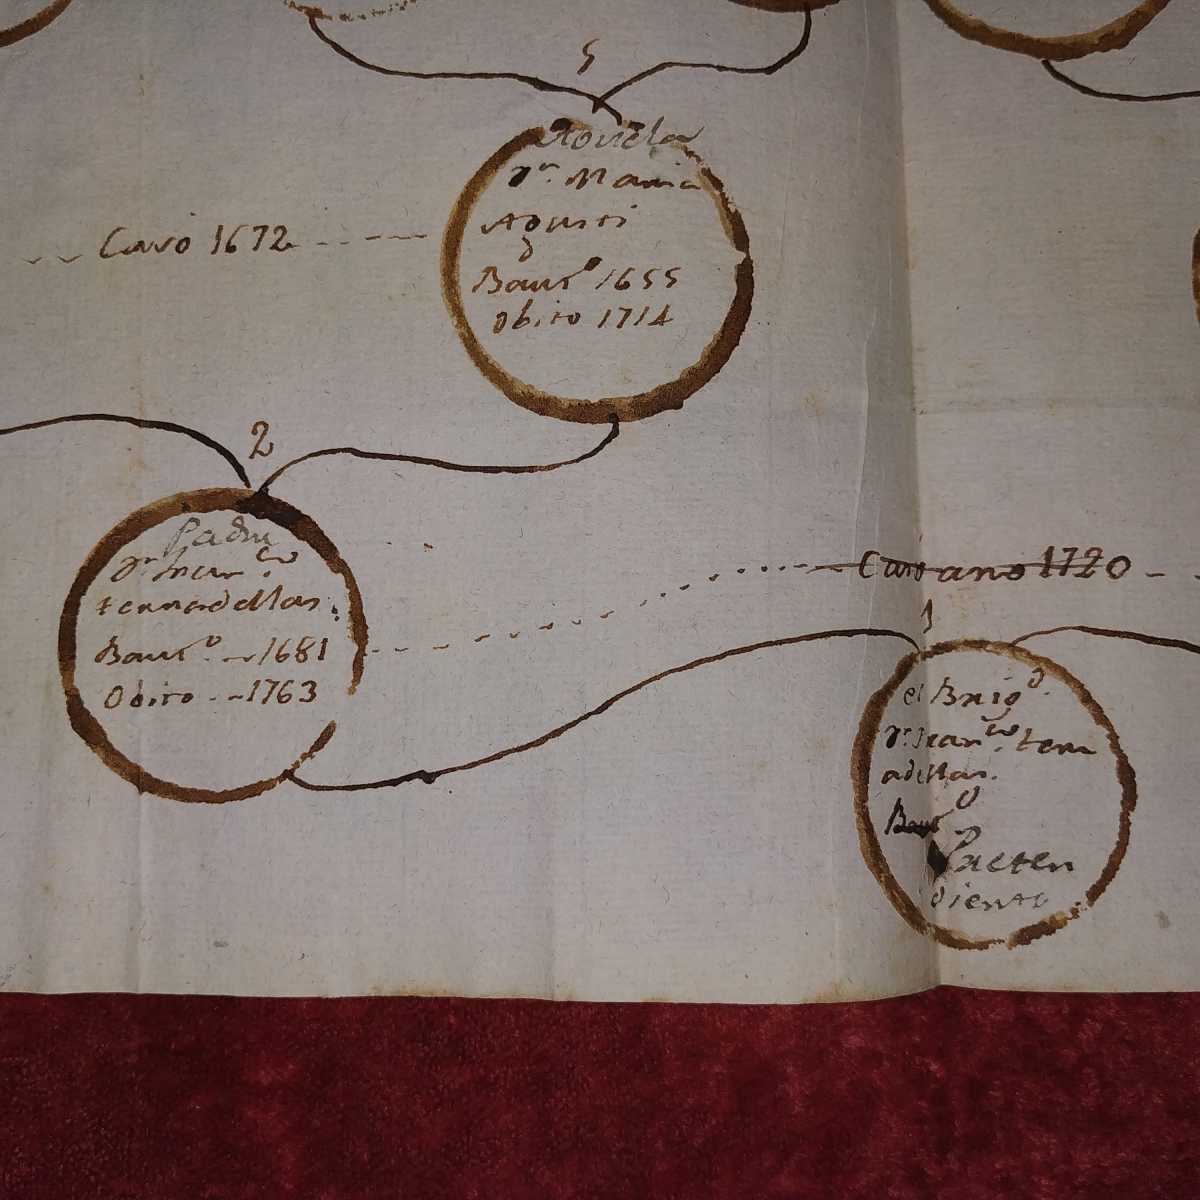 5
Abuela
Dª. Maria
Agusti
Bautº 1655
Obito 1714
Casó 1672
2
Padre
Dn. Franco
Ternadellas.
Bautº. 1681
Obito 1763
Casó ano 1720
1
el Brigr.
Dn. Franco. tern
adellas.
Bautº
Preten
diente